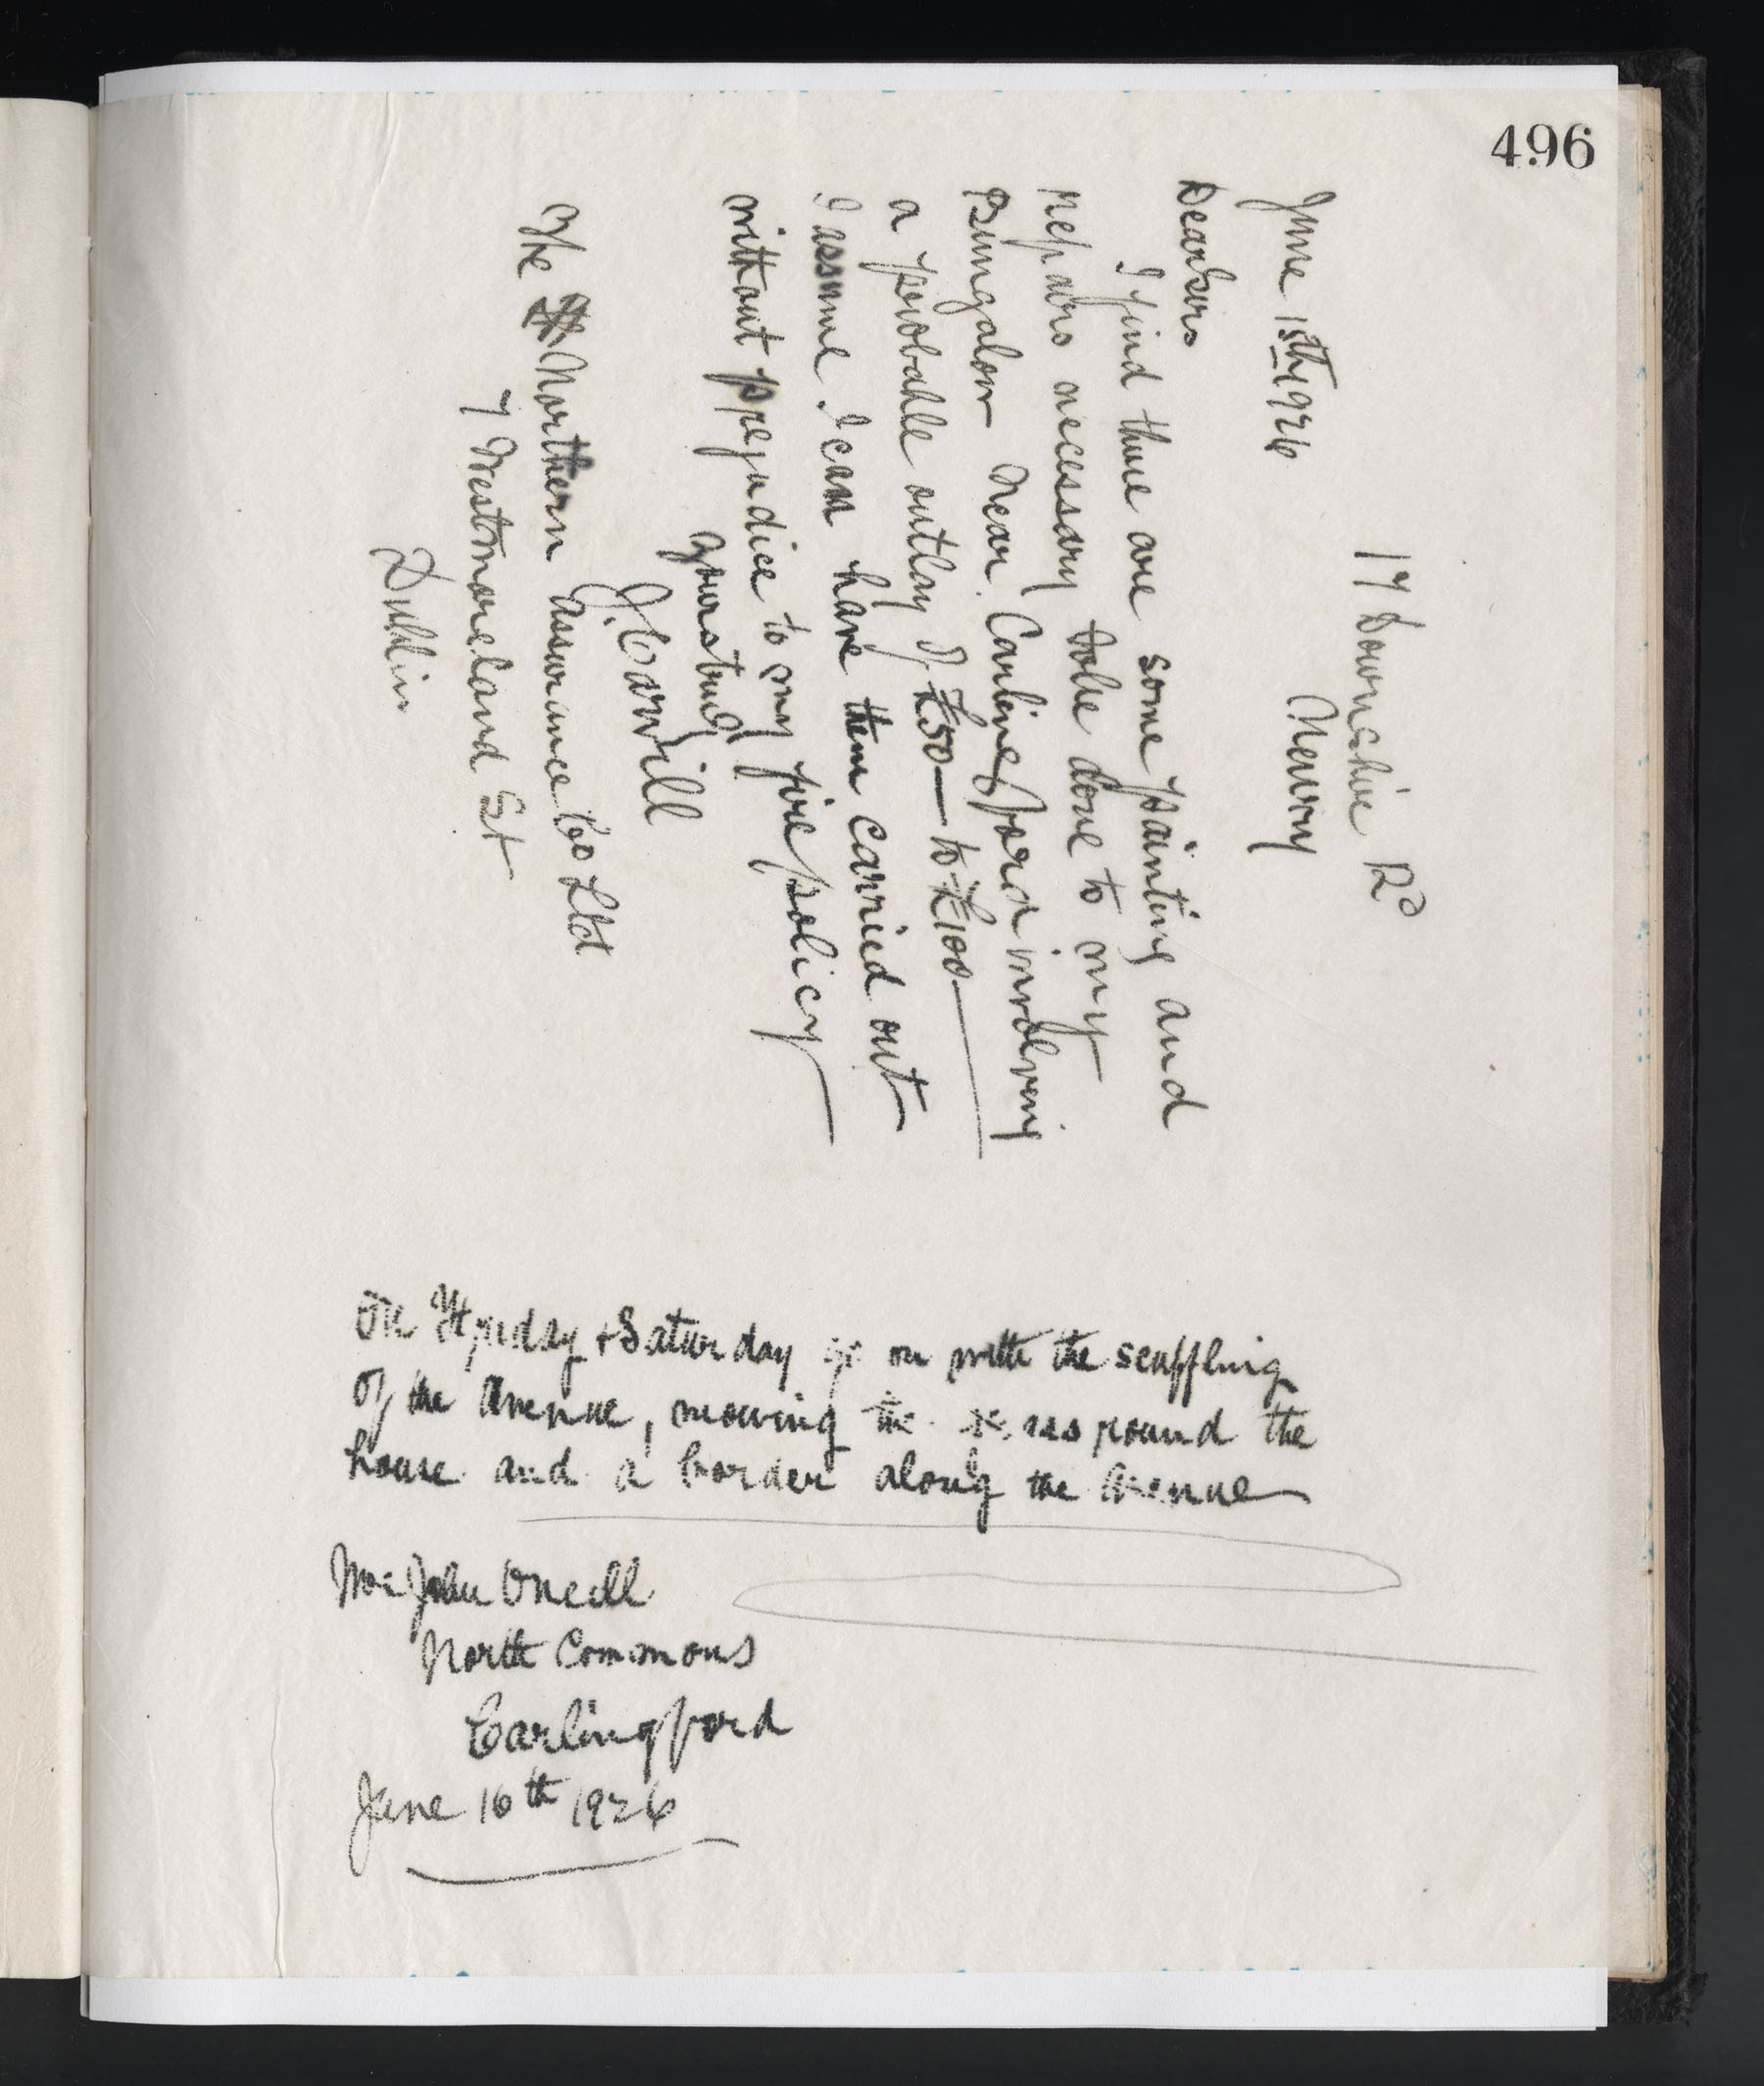 496
17 Downshire Rd
Newry
June 15th 1926
Dear Sirs
I find there are some painting and
repairs necessary to be done to my
Bungalow near Carlingford involving
a probable outlay of £50 — to £100 —
I assume I can have them carried out
without prejudice to my fire policy
yours truly
J. Carvill
The Northern Assurance Co Ltd
7 Westmoreland St
Dublin
On & Saturday go on with the scuffling
of the avenue, mowing the grass round the
house and a border along the avenue
Mr John ONeill
North Commons
Carlingford
June 16th 1926